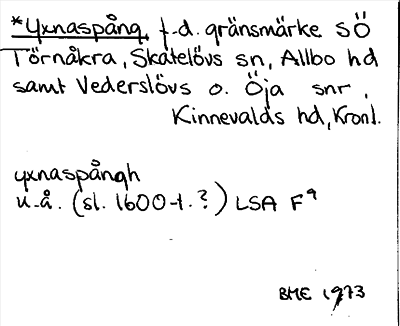 *Yxnaspång, f.d. gränsmärke SÖ
Törnåkra, Skatelövs sn, Allbo hd
samt Vederslövs o. Öja snr,
Kinnevalds hd, Kronl.
yxnaspångh
u.å. (sl. 1600-t.?) LSA F9
BME 1973